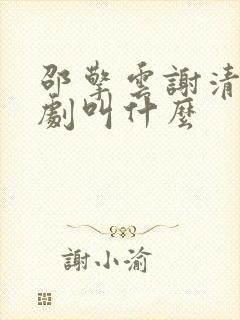 邵擎雲謝清
劇叫什麼
謝小渝